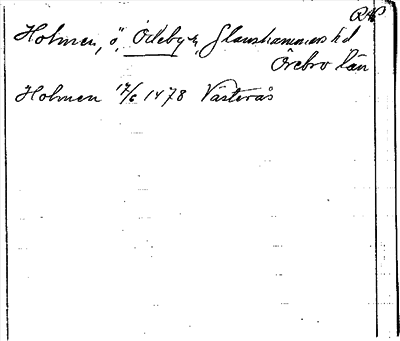 Holmen, ö, Ödeby sn, Glanshammars hd
Örebro län
Holmen 17/6 1478 Västerås